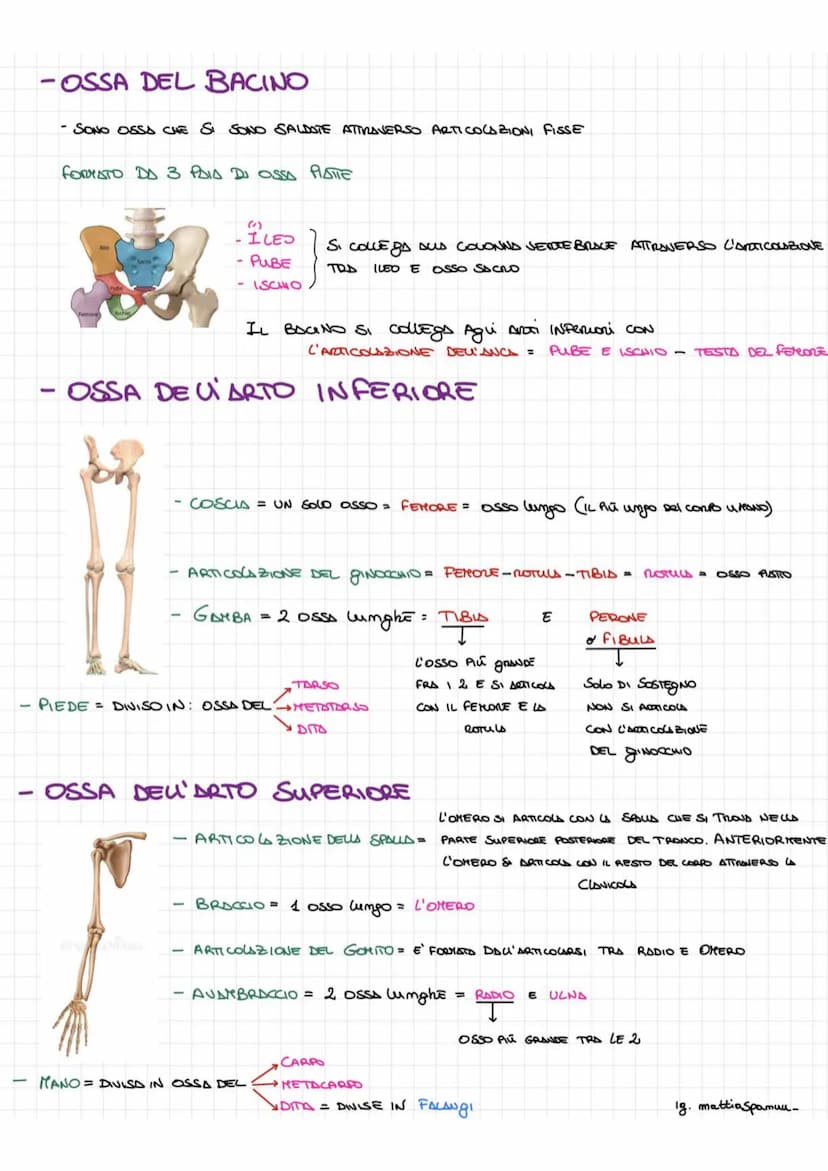 - OSSA DEL BACINO
- SONO OSSA CHE SI SONO SALDATE ATTRAVERSO ARTICOLAZIONI FISSE
FORMATO DA 3 PAIA DI OSSA PIATTE
(i)
- ILEO
- PUBE
- ISCHIO
SI COLLEGA ALLA COLONNA VERTEBRALE ATTRAVERSO L'ARTICOLAZIONE
TRA ILEO E OSSO SACRO
Ileo
Sacro
Pube
Femore
Ischio
IL BACINO SI COLLEGA AGLI ARTI INFERIORI CON
L'ARTICOLAZIONE DELL'ANCA = PUBE E ISCHIO - TESTA DEL FEMORE
- OSSA DELL'ARTO INFERIORE
- COSCIA = UN SOLO OSSO = FEMORE = OSSO LUNGO (IL PIÙ LUNGO DEL CORPO UMANO)
- ARTICOLAZIONE DEL GINOCCHIO = FEMORE-ROTULA-TIBIA = ROTULA = OSSO PIATTO
- GAMBA = 2 OSSA LUNGHE = TIBIA E PERONE
o' FIBULA
L'OSSO PIÙ GRANDE
FRA I 2 E SI ARTICOLA
CON IL FEMORE E LA
ROTULA
SOLO DI SOSTEGNO
NON SI ARTICOLA
CON L'ARTICOLAZIONE
DEL GINOCCHIO
- PIEDE = DIVISO IN: OSSA DEL
TARSO
METATARSO
DITA
- OSSA DELL'ARTO SUPERIORE
- ARTICOLAZIONE DELLA SPALLA =
L'OMERO SI ARTICOLA CON LA SPALLA CHE SI TROVA NELLA
PARTE SUPERIORE POSTERIORE DEL TRONCO. ANTERIORMENTE
L'OMERO SI ARTICOLA CON IL RESTO DEL CORPO ATTRAVERSO LA
CLAVICOLA
- BRACCIO = 1 OSSO LUNGO = L'OMERO
- ARTICOLAZIONE DEL GOMITO = E' FORMATA DALL'ARTICOLARSI TRA RADIO E OMERO
- AVAMBRACCIO = 2 OSSA LUNGHE = RADIO E ULNA
OSSO PIÙ GRANDE TRA LE 2
- MANO = DIVISA IN OSSA DEL
CARPO
METACARPO
DITA = DIVISE IN FALANGI
ig. mattiaspamuu_